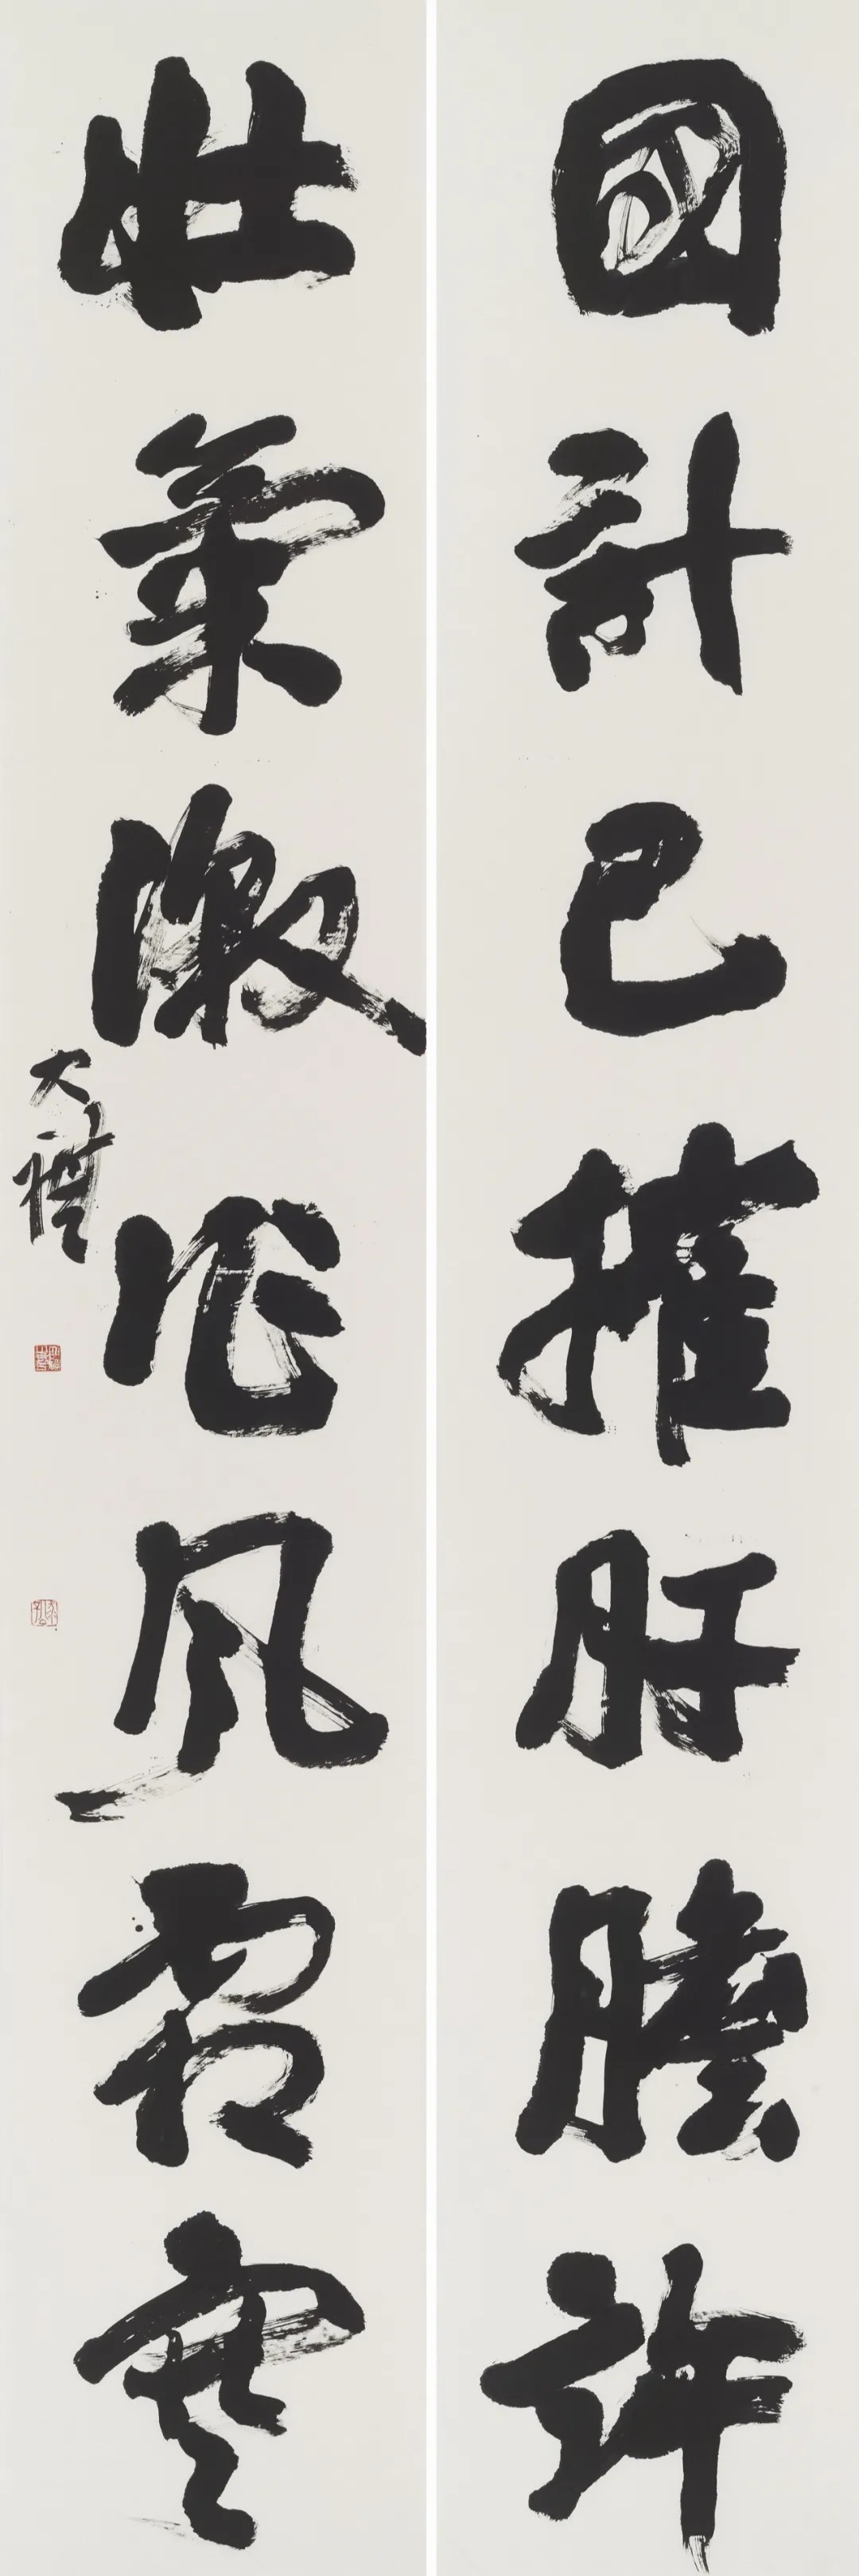 國計已推肝膽許
壯氣激作風霜寒
大